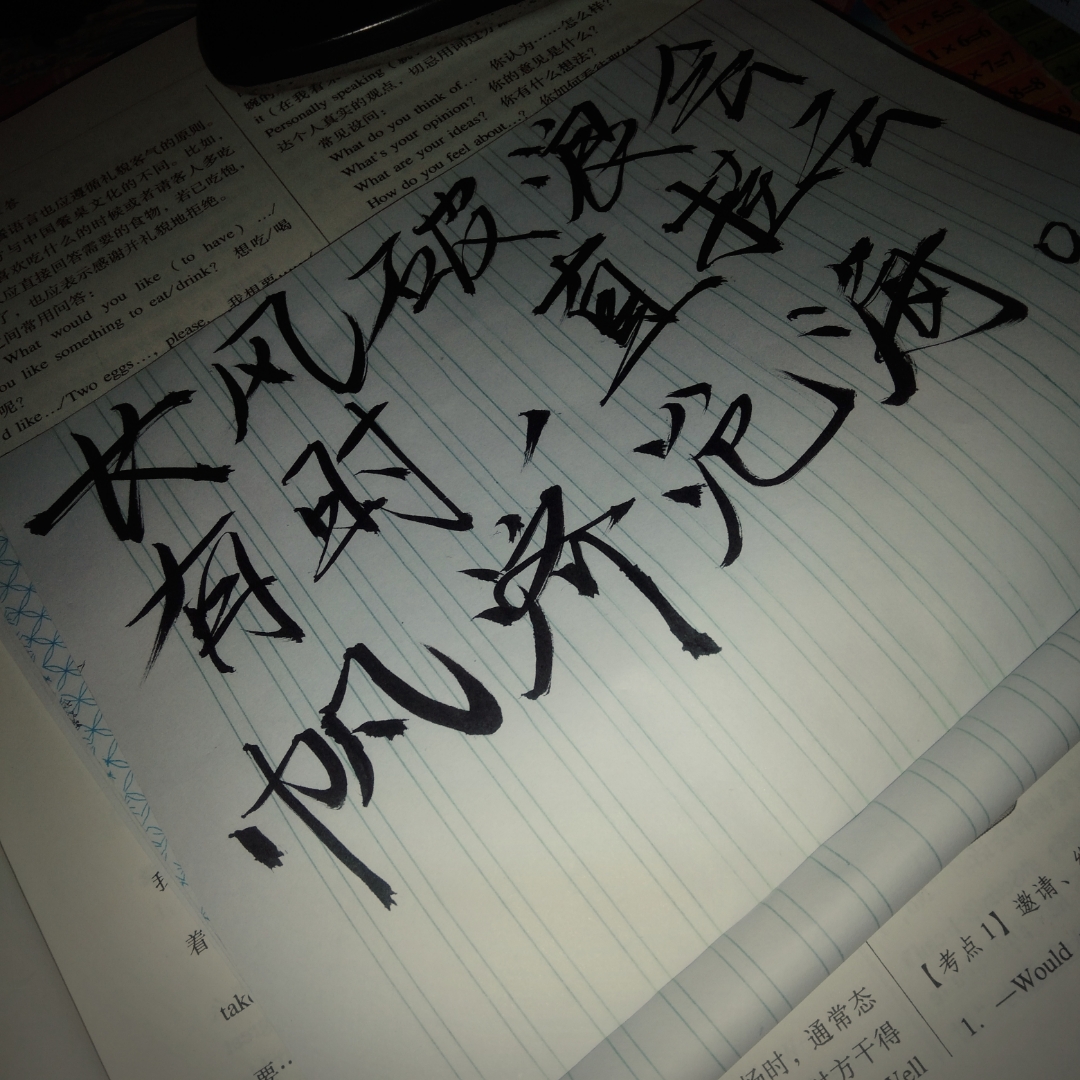 长风破浪会
有时，直挂云
帆济沧海。
答
谓语言也应遵循礼貌客气的原则。
与中国餐桌文化的不同。比如，
喜欢吃什么的时候或者请客人多吃
应直接回答需要的食物，若已吃饱，
了，也应表示感谢并礼貌地拒绝。
间常用问答：
What would you like (to have) …/
ou like something to eat/drink? 想吃/喝
呢？
d like…/Two eggs…, please. 我想要
it (在我看
Personally speaking
达个人真实的观点，切忌用词过
常见设问：
What do you think of… 你认为……怎么样？
What's your opinion? 你的意见是什么？
What are your ideas? 你有什么想法？
How do you feel about…?
1×6=6
1×7=7
着
take
要…
【考点1】邀请、
1. —Would
场时，通常态
对方干得
Well